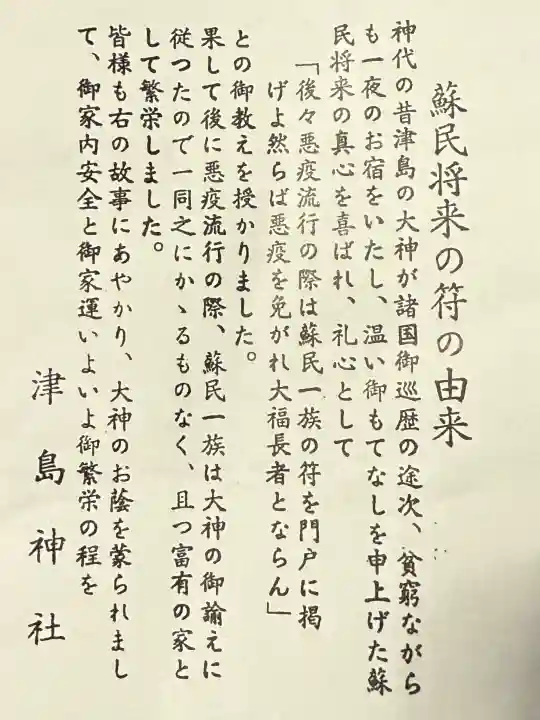 蘇民将来の符の由来
神代の昔津島の大神が諸国御巡歴の途次、貧窮ながら
も一夜のお宿をいたし、温い御もてなしを申上げた蘇
民将来の真心を喜ばれ、礼心として
「後々悪疫流行の際は蘇民一族の符を門戸に掲
げよ然らば悪疫を免がれ大福長者とならん」
との御教えを授かりました。
果して後に悪疫流行の際、蘇民一族は大神の御諭えに
従つたので一同之にかゝるものなく、且つ富有の家と
して繁栄しました。
皆様も右の故事にあやかり、大神のお蔭を蒙られまし
て、御家内安全と御家運いよいよ御繁栄の程を
津島神社